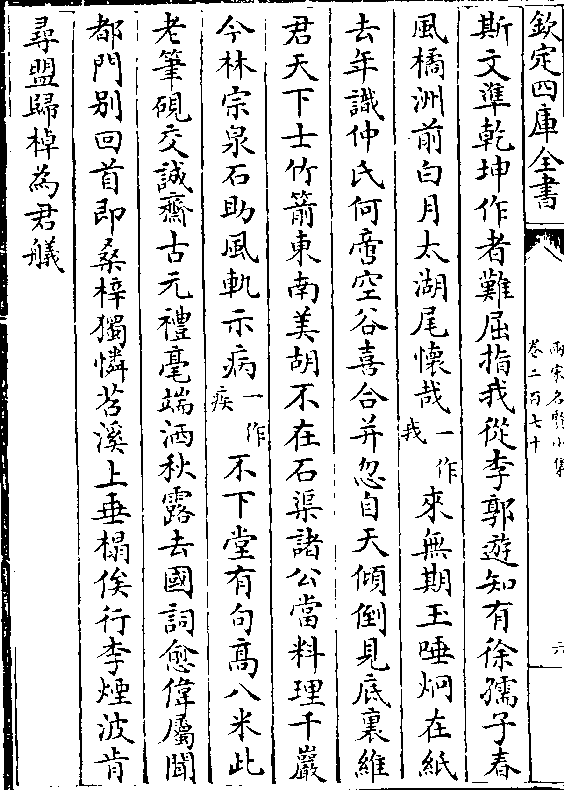 欽定四庫全書
兩宋名賢小集
卷二百七十
六
斯文準乾坤作者難屈指我從李郭遊知有徐孺子春
風橘洲前白月太湖尾懷哉一作我來無期玉唾炯在紙
去年識仲氏何啻空谷喜合并忽自天傾倒見底裏維
君天下士竹箭東南美胡不在石渠諸公當料理千巖
今林宗泉石助風軌示病一作疾不下堂有句高八米此
老筆硯交誠齋古元禮毫端洒秋露去國詞愈偉屬聞
都門别回首即桑梓獨憐苕溪上垂榻俟行李煙波肯
尋盟歸棹為君艤